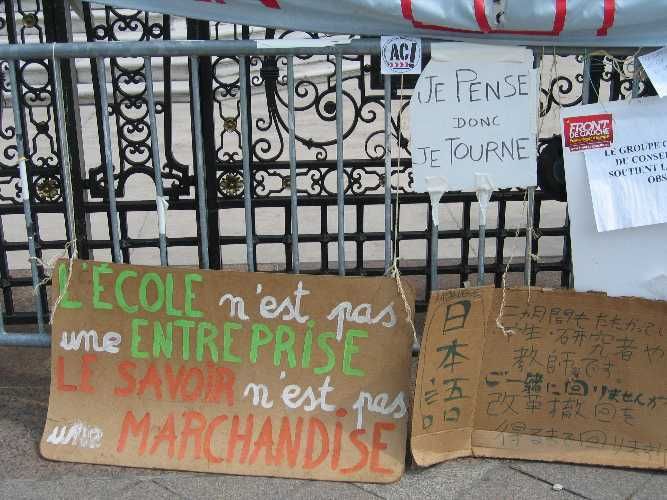 AC!
JE PENSE
DONC
JE TOURNE
FRONT
DE GAUCHE
LE GROUPE
DU CONSE
SOUTIENT L
OBS
L'ÉCOLE n'est pas
une ENTREPRISE
LE SAVOIR n'est pas
une MARCHANDISE
日本語
三ヵ月間もたたかって
学生・研究者や
教師です
ご一緒に回りませんか
改革撤回を
得るまで回ります